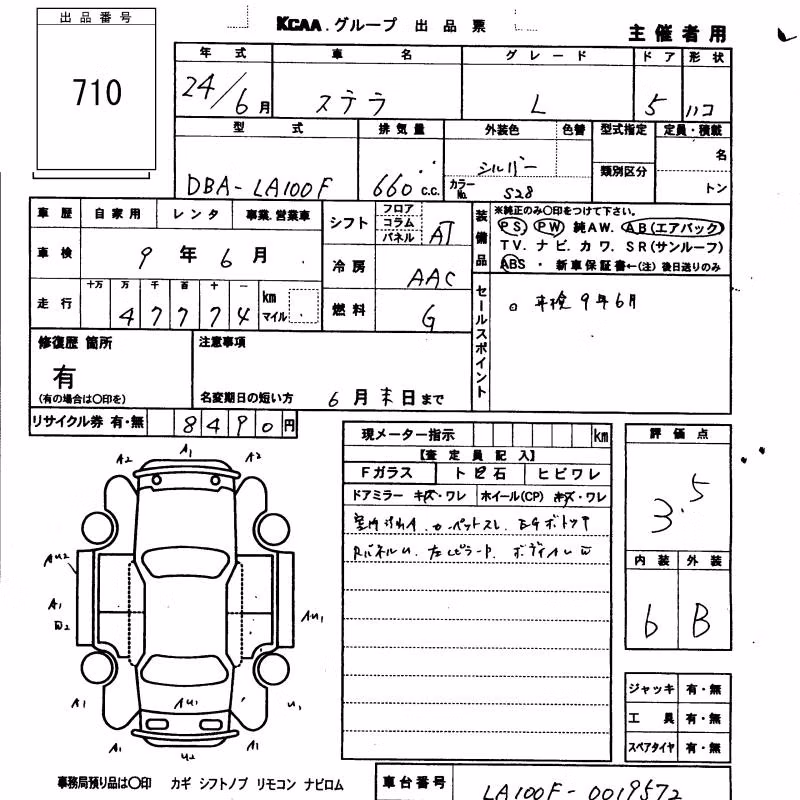 出品番号
710
KCAA.グループ 出品票
主催者用
年式 車名 グレード ドア 形状
24/6月 ステラ L 5 ハコ
型式 排気量 外装色 色替 型式指定 定員・積載
名
類別区分
DBA-LA100F 660 c.c. シルバー カラーNo. S28 トン
車歴 自家用 レンタ 事業.営業車
シフト フロア コラム パネル AT
装備品
※純正のみ○印をつけて下さい。
PS PW 純AW. AB(エアバック)
TV. ナビ. カワ. SR(サンルーフ)
ABS ・ 新車保証書←(注)後日送りのみ
車検 9年6月
冷房 AAC
走行 十万 万 千 百 十 一
4 7 7 7 4 km マイル
燃料 G
セールスポイント
○ 車検9年6月
修復歴 箇所
有
(有の場合は○印を)
注意事項
名変期日の短い方 6月末日まで
リサイクル券 有・無 8490円
現メーター指示 km
【査定員記入】
Fガラス トビ石 ヒビワレ
ドアミラー キズ・ワレ ホイール(CP) キズ・ワレ
評価点
3.5
内装 外装
6 B
A1
A2 A2
AU2
A1
AU1
A1 AU1 U1
A1 A1
U2
ジャッキ 有・無
工具 有・無
スペアタイヤ 有・無
事務局預り品は○印 カギ シフトノブ リモコン ナビロム
車台番号 LA100F-0019572